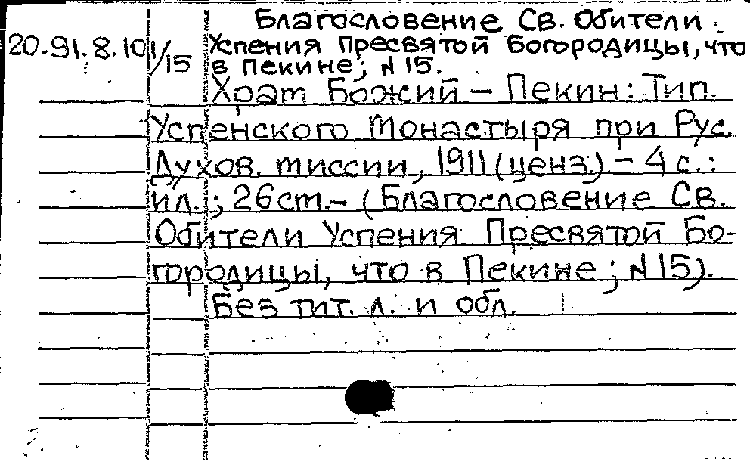 Благословение Св. Обители
20.91.8.10 1/15 Успения Пресвятой Богородицы, что
в Пекине; N 15.
Храм Божий – Пекин: Тип.
Успенского Монастыря при Рус.
Духов. миссии, 1911 (ценз.) – 4 с.:
ил.; 26 см. – (Благословение Св.
Обители Успения Пресвятой Бо-
городицы, что в Пекине; N 15).
Без тит. л. и обл.